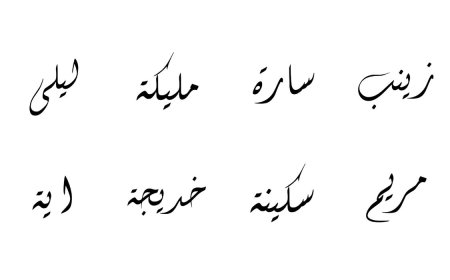 زينب سارة مليكة ليلى
مريم سكينة خديجة اية